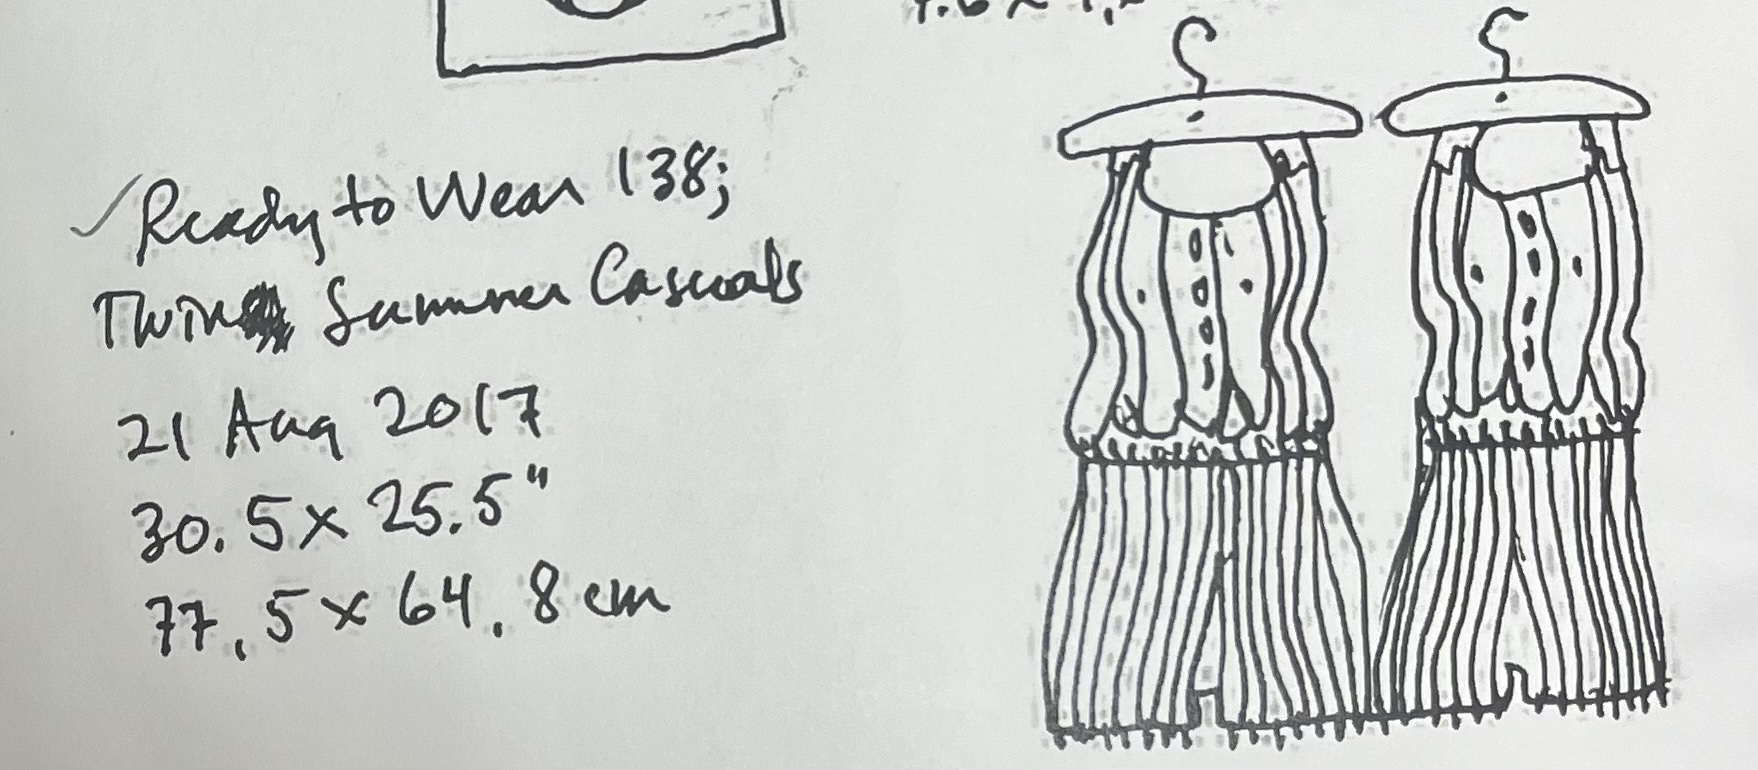 Ready to Wear 138;
Twin Summer Casuals
21 Aug 2017
30.5 x 25.5"
77.5 x 64.8 cm